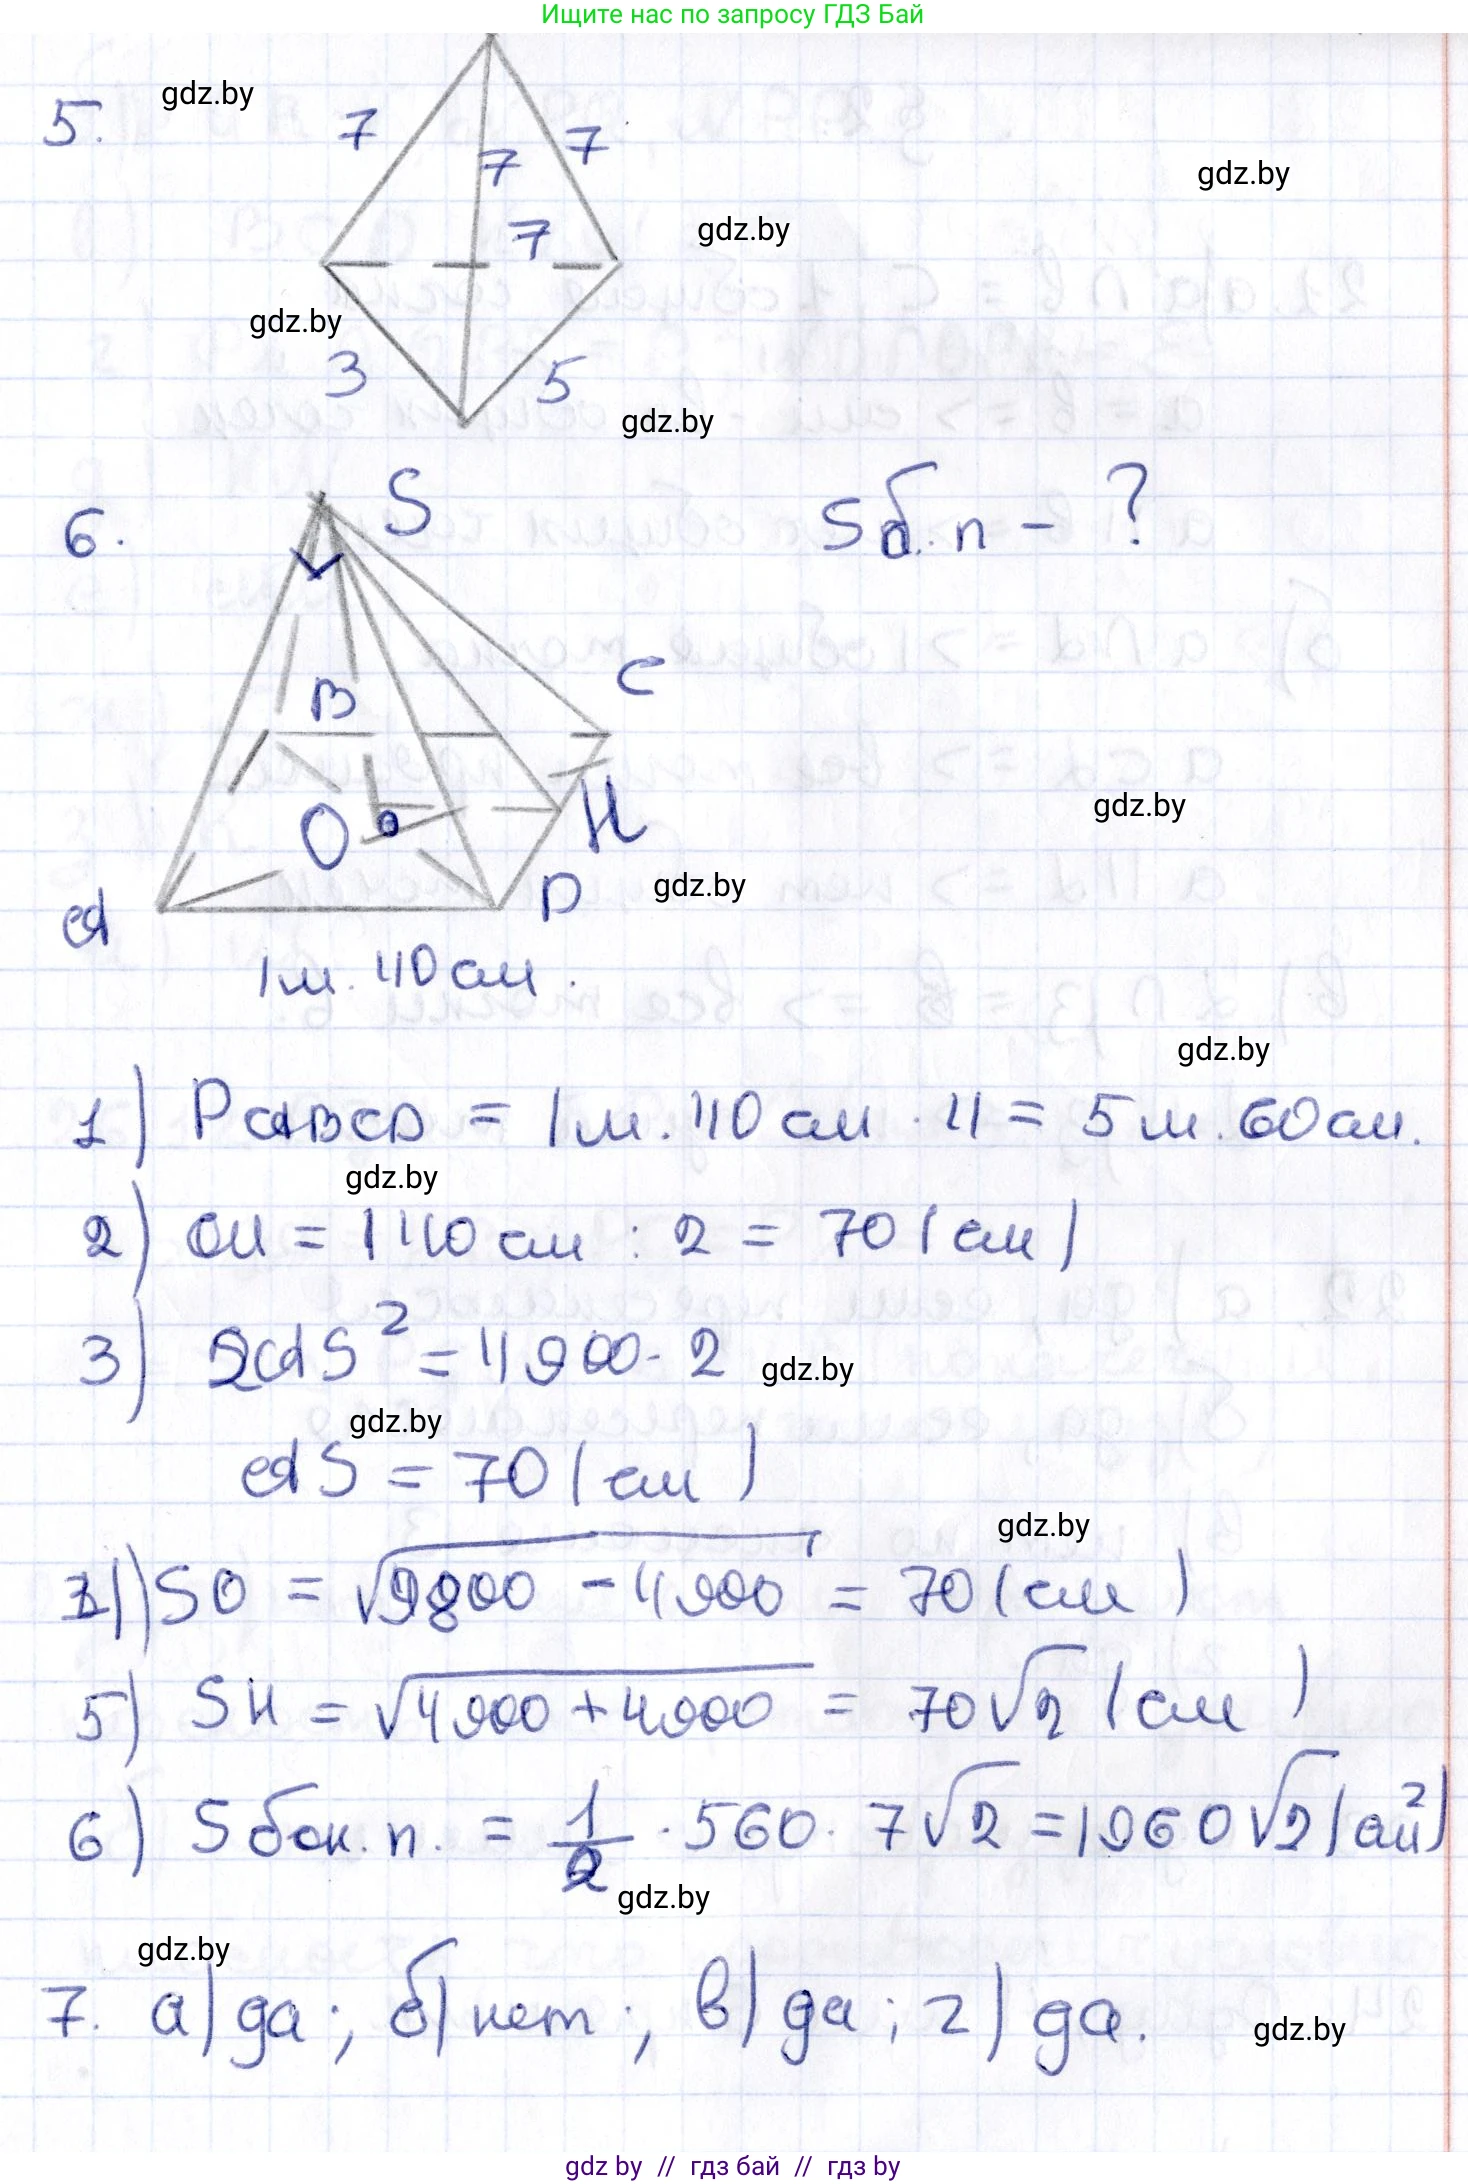 Ищите нас по запросу ГДЗ Бай
5.
gdz.by
7
7
7
gdz.by
7
gdz.by
gdz.by
3
5
gdz.by
6.
S
Sб.п - ?
C
B
gdz.by
O
H
gdz.by
A
D
1м. 40см.
gdz.by
1) PABCD = 1м. 40см · 4 = 5м. 60см.
gdz.by
2) OH = 140см : 2 = 70 (см)
3) 2AS² = 4900 · 2
gdz.by
gdz.by
AS = 70 (см)
gdz.by
4) SO = √9800 - 4900 = 70 (см)
5) SH = √4900 + 4900 = 70√2 (см)
6) Sбок.п. = 1/2 · 560 · 7√2 = 1960√2 (см²)
gdz.by
gdz.by
7. а) да; б) нет; в) да; г) да.
gdz.by
gdz by // гдз бай // гдз by